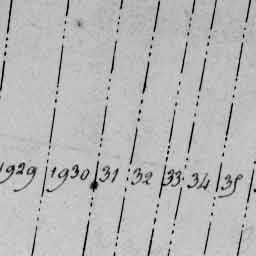 1929 1930 31 32 33 34 35